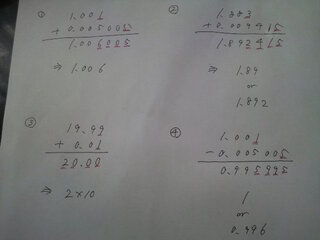 ①
1.001
+ 0.005005
1.006005
⇒ 1.006
②
1.883
+ 0.009415
1.892415
⇒ 1.89
or
1.892
③
19.99
+ 0.01
20.00
⇒ 2×10
④
1.001
- 0.005005
0.995995
1
or
0.996